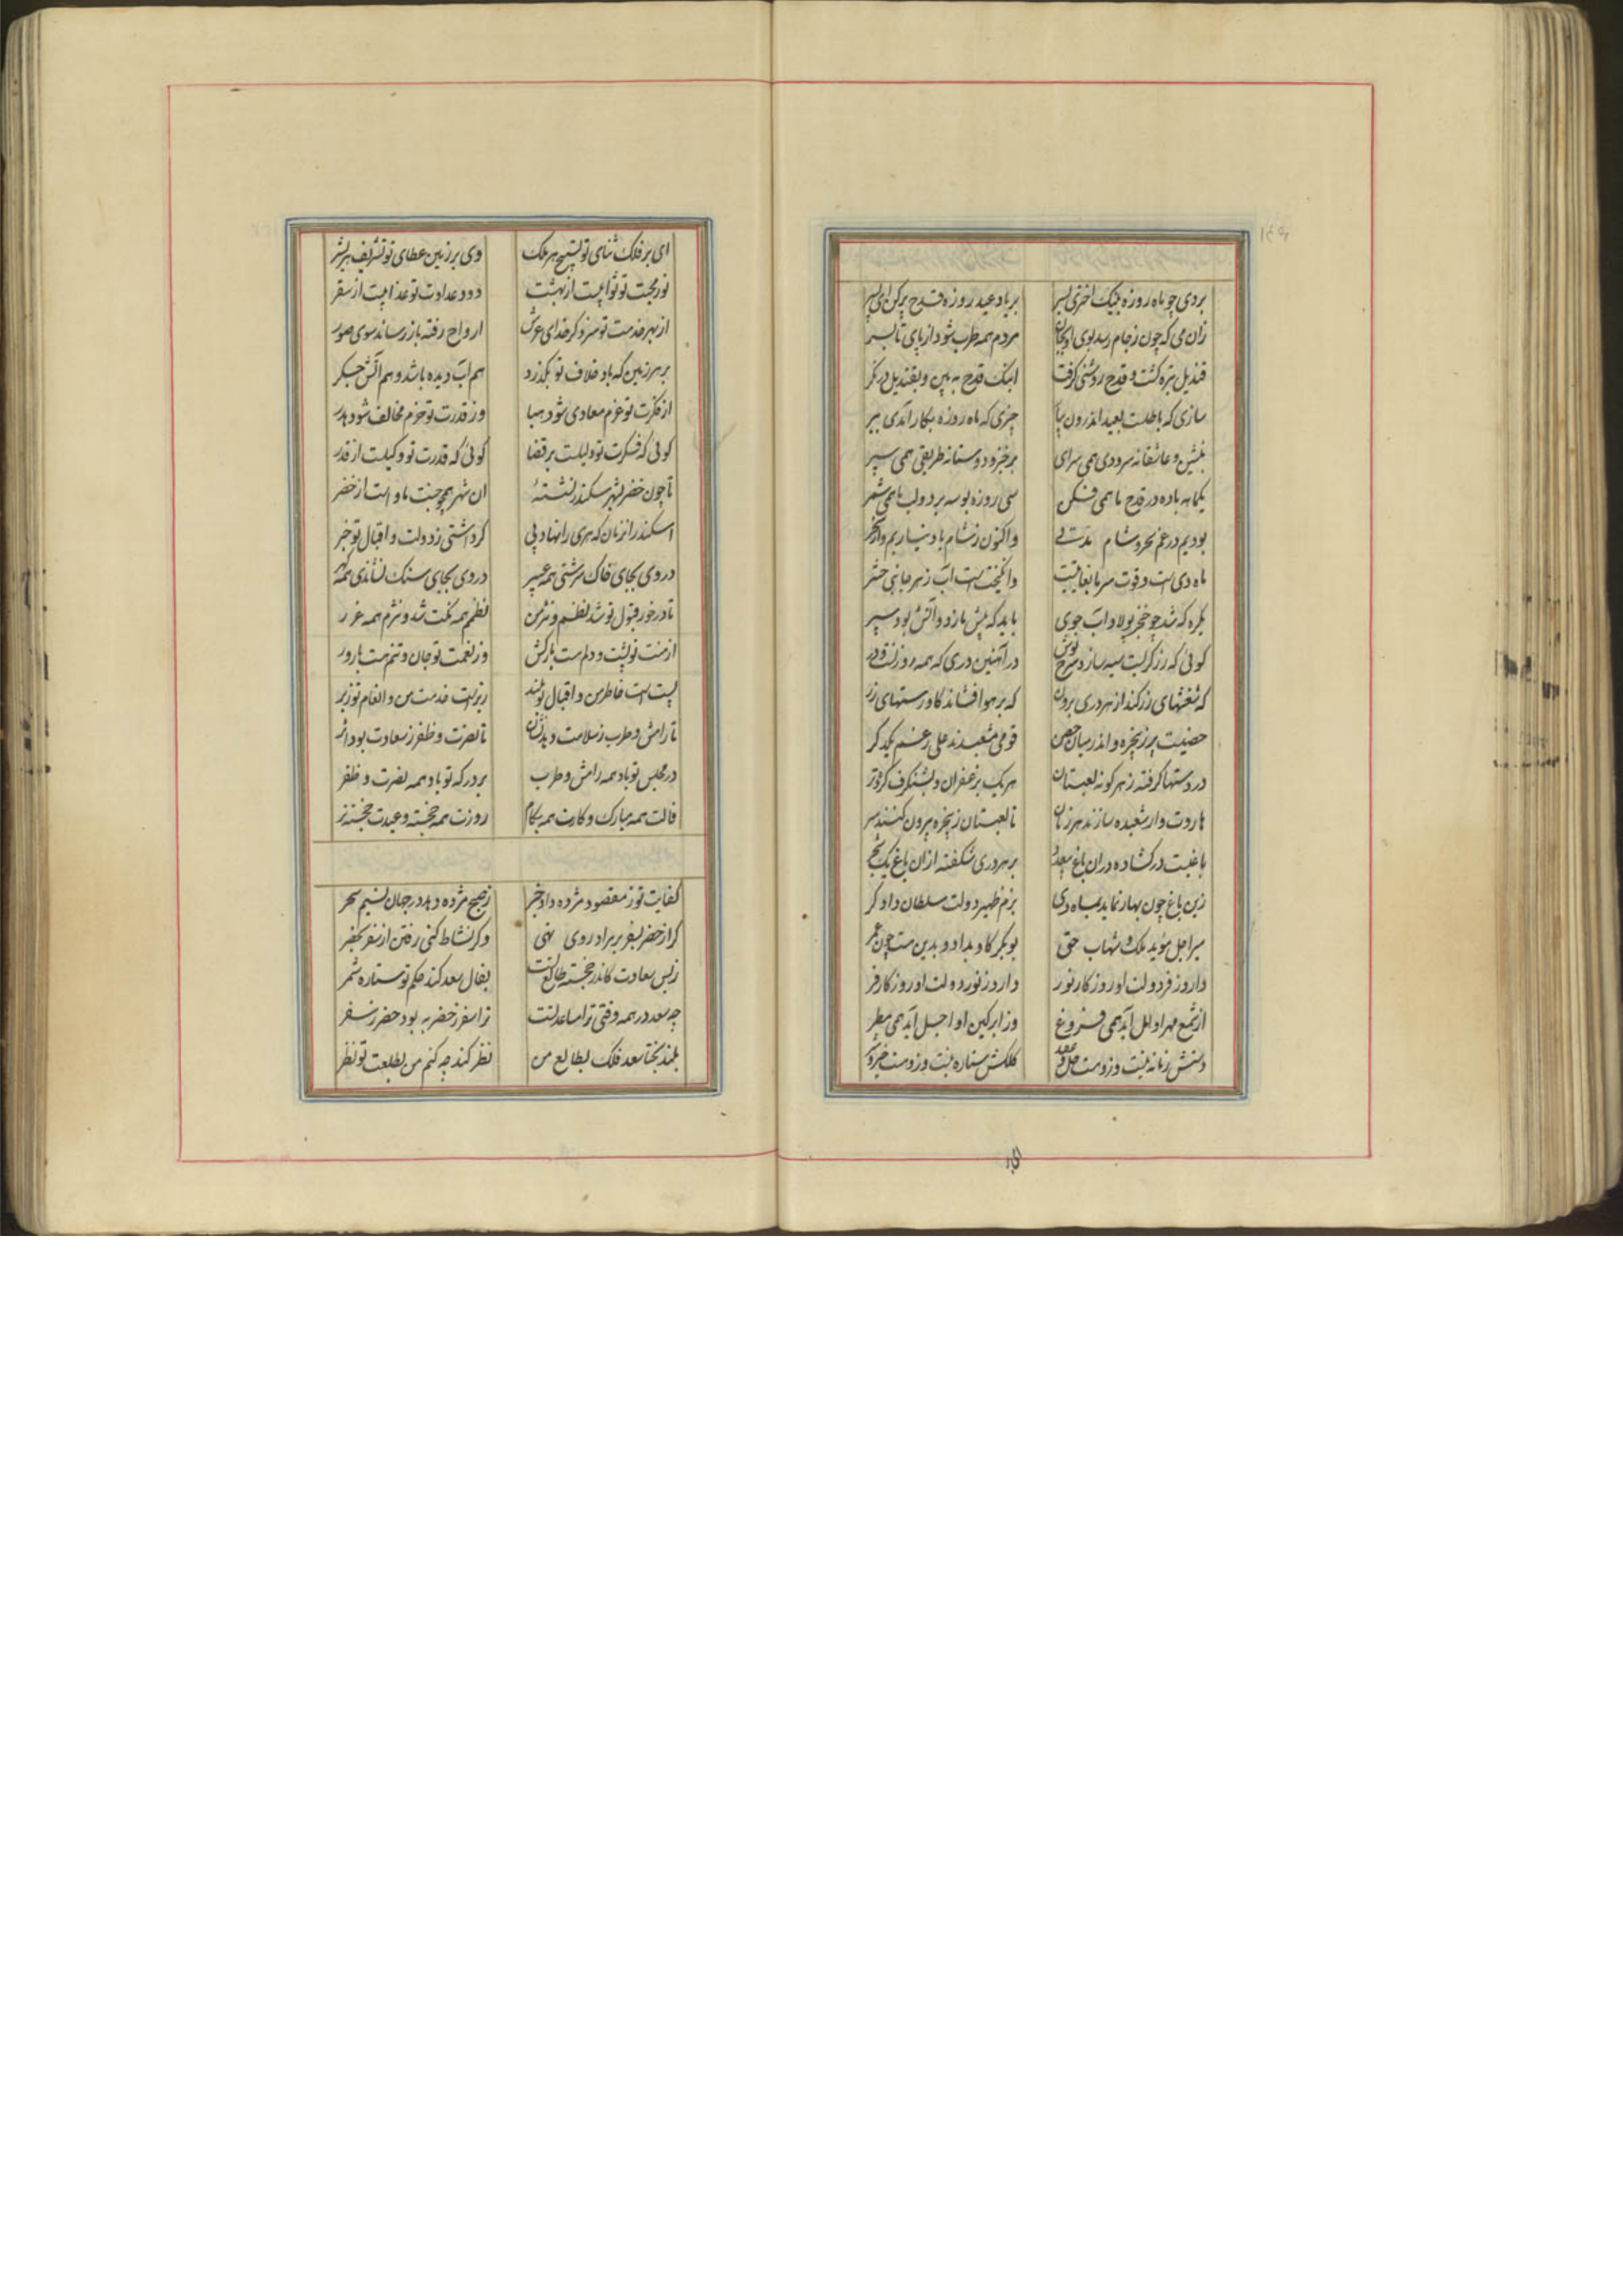 بردی چو ماه روزه بنیک اختری بسر بر یاد عید روزه قدح پر کن ای پسر
زان می که چون ز جام رسد بوی او بجان مردم همه طرب شود از پای تا بسر
قندیل تیره گشت و قدح روشنی گرفت اینک قدح به بین و بقندیل در نکر
سازی که باطلت بعید اندرون بیا چیزی که ماه روزه بکار آیدی ببر
بنشین و عاشقانه سرودی همی سرای برخیز و دوستانه طریقی همی سپر
یکماهه باده در قدح ما همی فکن سی روزه بوسه بر دو لب ما همی شمر
بودیم در غم سحر و شام مدتی و اکنون ز شام یاد نیاریم و از سحر
ماه دی است و قوت سرما بغایتیت وانگیخت است آب ز هر جانبی حشر
یکره که شد چو خنجر پولاد آب جوی باید که پیش بازو و آتش بود سپر
کوئی که زرگریت سیه ساز و سرخ پوش در آهنین دری که همه روز
که شفشهای زر کند از هر دری برون که بر هوا فشاند کاورسهای زر
حصنیت پر ز پنجره و اندر میان حصن قومی مشعبدند علی رغم یکدکر
در دستها کرفته ز هر کونه لعبتان هر یک بزعفران و بشنکرف کرده تر
هاروت وار شعبده سازند هر زمان تا لعبتان ز پنجره بیرون کنند سر
باغیت در کشاده در ان باغ بر هر دری شکفته از ان باغ یک شجر
زین باغ چون بهار نماید بماه دی بزم ظهیر دولت سلطان دادکر
میر اجل مؤید ملک و شهاب حق بوبکر کاو بداد و بدین ست چون عمر
دارو ز فر دولت او روزکار نور دارو ز نور دولت او روزکار فر
از شمع مهر او امل آید همی فروغ وز ابر کین او اجل آید همی مطر
دستش زمانه نیست وزوست حل و عقد کلکش ستاره نیست وزوست خیر و شر
ای بر فلک ثنای تو تسبیح هر ملک وی بر زمین عطای تو تشریف هر بشر
نور محبت تو ثوابیت از بهشت دود عداوت تو عذابیت از سقر
از بهر خدمت تو سزد کر خدای عرش ارواح رفته باز رساند سوی صور
بر هر زمین که باد خلاف تو بکذرد هم آب دیده باشد و هم آتش جکر
از فکرت تو عزم معادی شود هبا وز قدرت تو حزم مخالف شود هدر
کوئی که فکرت تو دلیلت بر قضا کوئی که قدرت تو وکیلت از قدر
تا چون خضر بشهر سکندر نشستهٔ ان شهر همچو جنت ماوا است از خضر
اسکندر از زمان که هری را نهاد پی کر داشتی ز دولت و اقبال تو خبر
در وی بجای خاک سرشتی همه عبیر در وی بجای سنک نشاندی همه کهر
تا در خور قبول تو شد نظم و نثر من نظمم همه نکت شد و نثرم همه غرر
از منت تو پشت و دلم ست بارکش وز نعمت تو جان و تنم ست بارور
پست است خاطر من و اقبال تو بلند زیر است خدمت من و انعام تو زبر
تا رامش و طرب ز سلامت دهد نشان تا نصرت و ظفر ز سعادت بود اثر
در مجلس تو باد همه رامش و طرب بر درکه تو باد همه نصرت و ظفر
فالت همه مبارک و کارت همه بکام روزت همه خجسته و عیدت خجسته تر
کفایت تو ز مقصود مژده داد و خبر ز صبح مژده دهد در جهان نسیم سحر
کر از حضر بسفر بر مراد روی نهی وکر نشاط کنی رفتن از سفر بحضر
ز بس سعادت کاندر خجسته طالع تست بفال سعد کند حکم تو ستاره شمر
چه سعد در همه وقتی ترا مساعد تست ترا سفر ز حضر به بود حضر ز سفر
بلند بختا سعد فلک بطالع من نظر کند چه کنم من بطلعت تو نظر